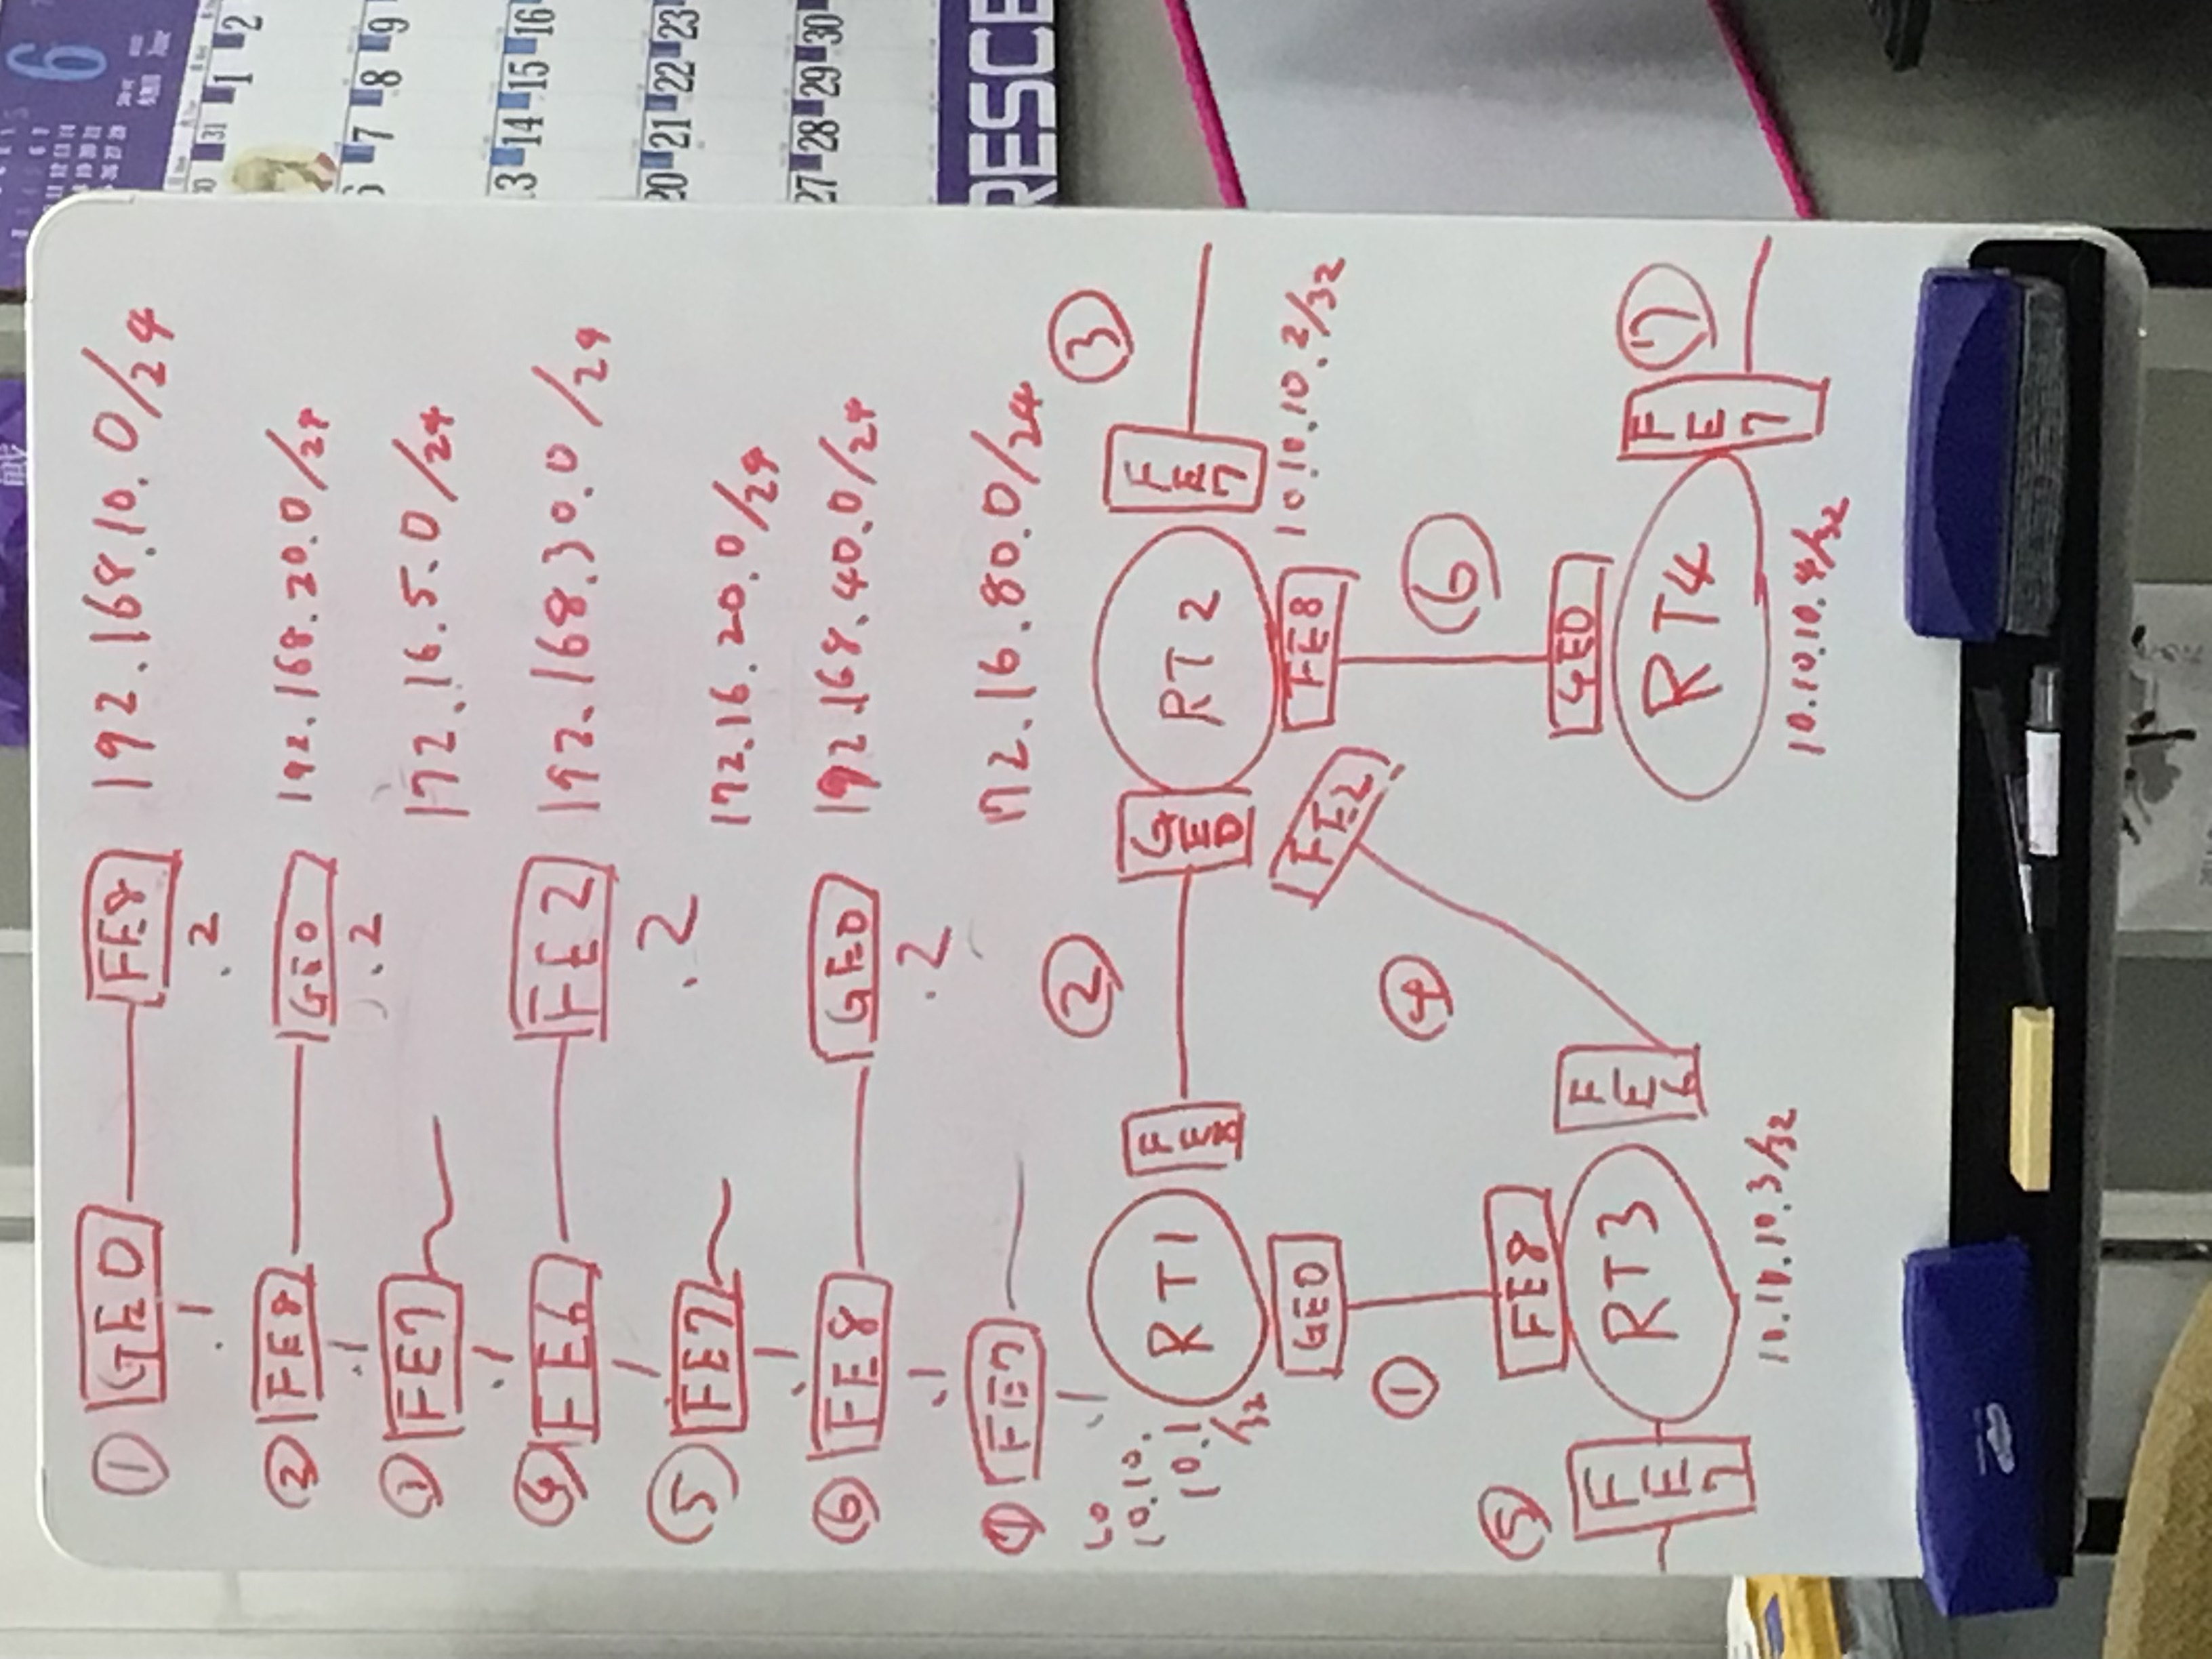 ① GE0 FE8 192.168.10.0/24
.1 .2
② FE8 GE0 192.168.20.0/24
.1 .2
③ FE7 172.16.5.0/24
.1
④ FE6 FE2 192.168.30.0/24
.1 .2
⑤ FE7 172.16.20.0/24
.1
⑥ FE8 GE0 192.168.40.0/24
.1 .2
⑦ FE7 172.16.80.0/24
.1
Lo
10.10.
10.1
/32
RT1
FE8
②
GE0
RT2
FE7
③
10.10.10.2/32
GE0
FE2
FE8
①
④
⑥
⑤
FE8
GE0
FE7
RT3
FE6
RT4
FE7
⑦
10.10.10.3/32
10.10.10.4/32
6
June
31 1 2
6 7 8 9
13 14 15 16
20 21 22 23
27 28 29 30
RESCE